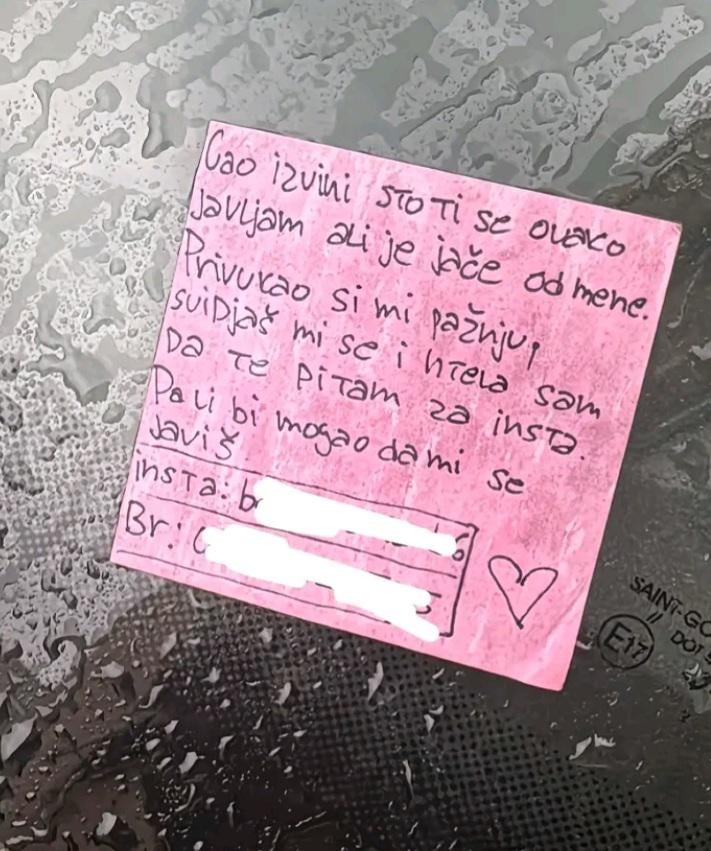 Cao izvini sto ti se ovako
javljam ali je jače od mene.
Privukao si mi pažnju,
svidjaš mi se i htela sam
da te pitam za insta.
Da li bi mogao da mi se
javiš
insta: b
Br.:
SAINT-GO
DOT
E17